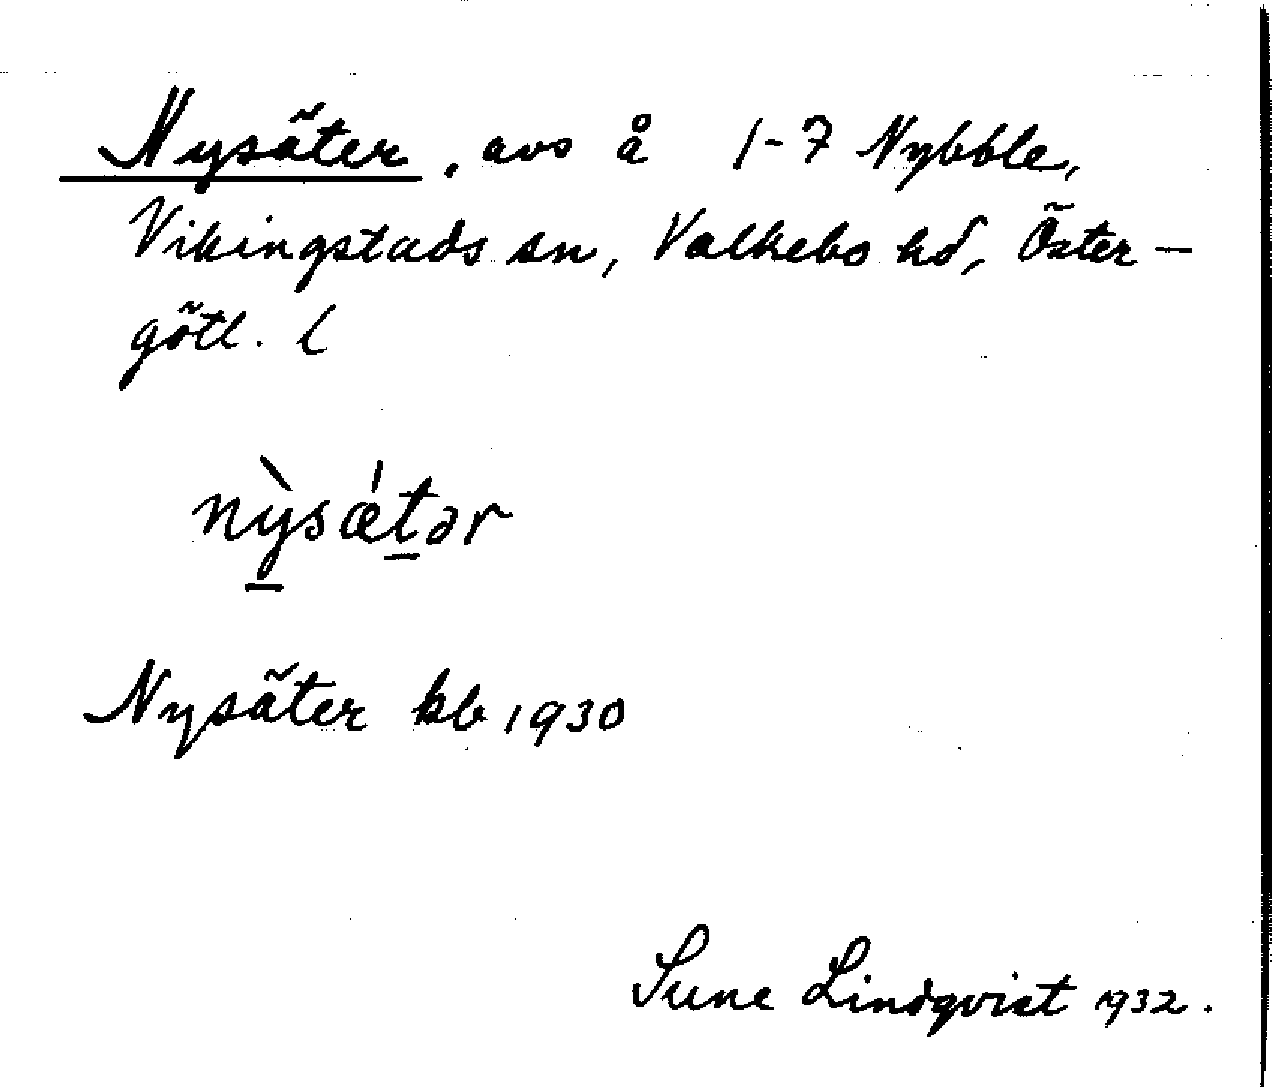 Nysäter, avs å 1-7 Nybble,
Vikingstads sn, Valkebo hd, Öster-
götl. l
nỳsǽtər
Nysäter kb 1930
Sune Lindqvist 1932.